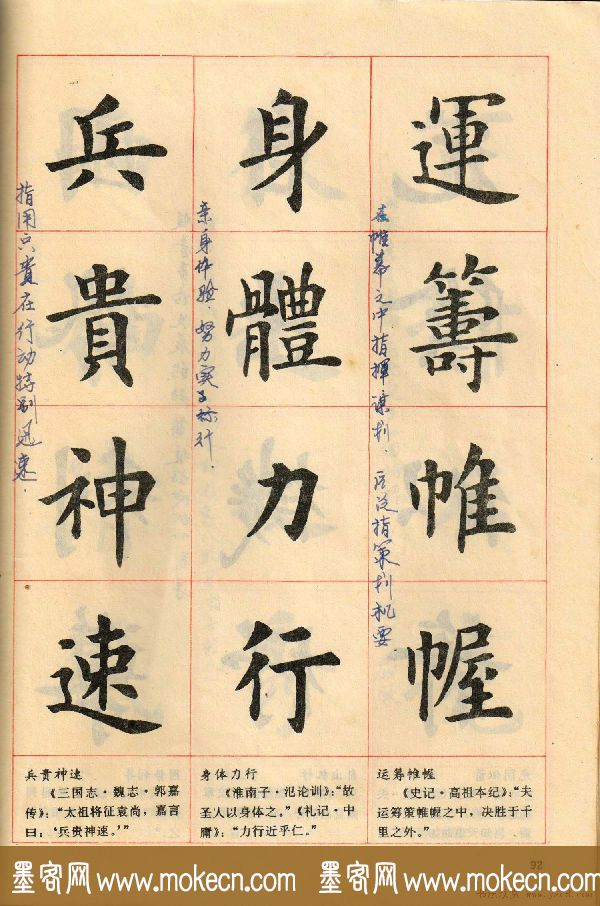 運籌帷幄
身體力行
兵貴神速
在帷幕之中指揮谋划.
指用兵貴在行动特别迅速.
兵贵神速
《三国志·魏志·郭嘉
传》:“太祖将征袁尚,嘉言
曰:‘兵贵神速。’”
身体力行
《淮南子·氾论训》:“故
圣人以身体之。”《礼记·中
庸》:“力行近乎仁。”
运筹帷幄
《史记·高祖本纪》:“夫
运筹策帷幄之中,决胜于千
里之外。”
92
墨客网 www.mokecn.com 墨客网 www.mokecn.com